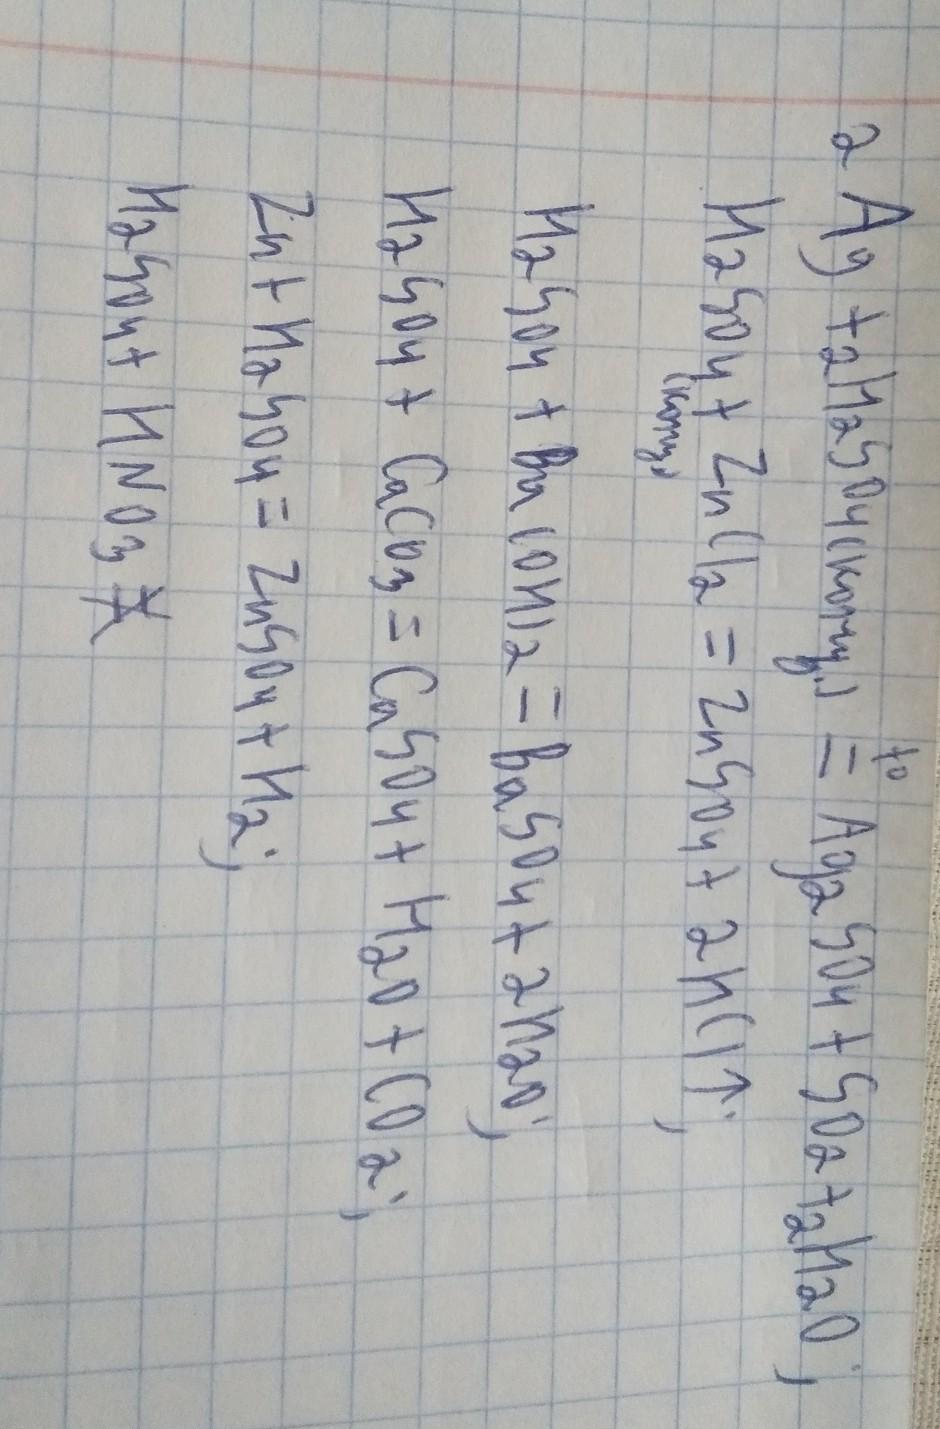 2Ag + 2H2SO4(конц.) =t° Ag2SO4 + SO2 + 2H2O;
H2SO4(конц.) + ZnCl2 = ZnSO4 + 2HCl↑;
H2SO4 + Ba(OH)2 = BaSO4 + 2H2O;
H2SO4 + CaCO3 = CaSO4 + H2O + CO2;
Zn + H2SO4 = ZnSO4 + H2;
H2SO4 + HNO3 ≠